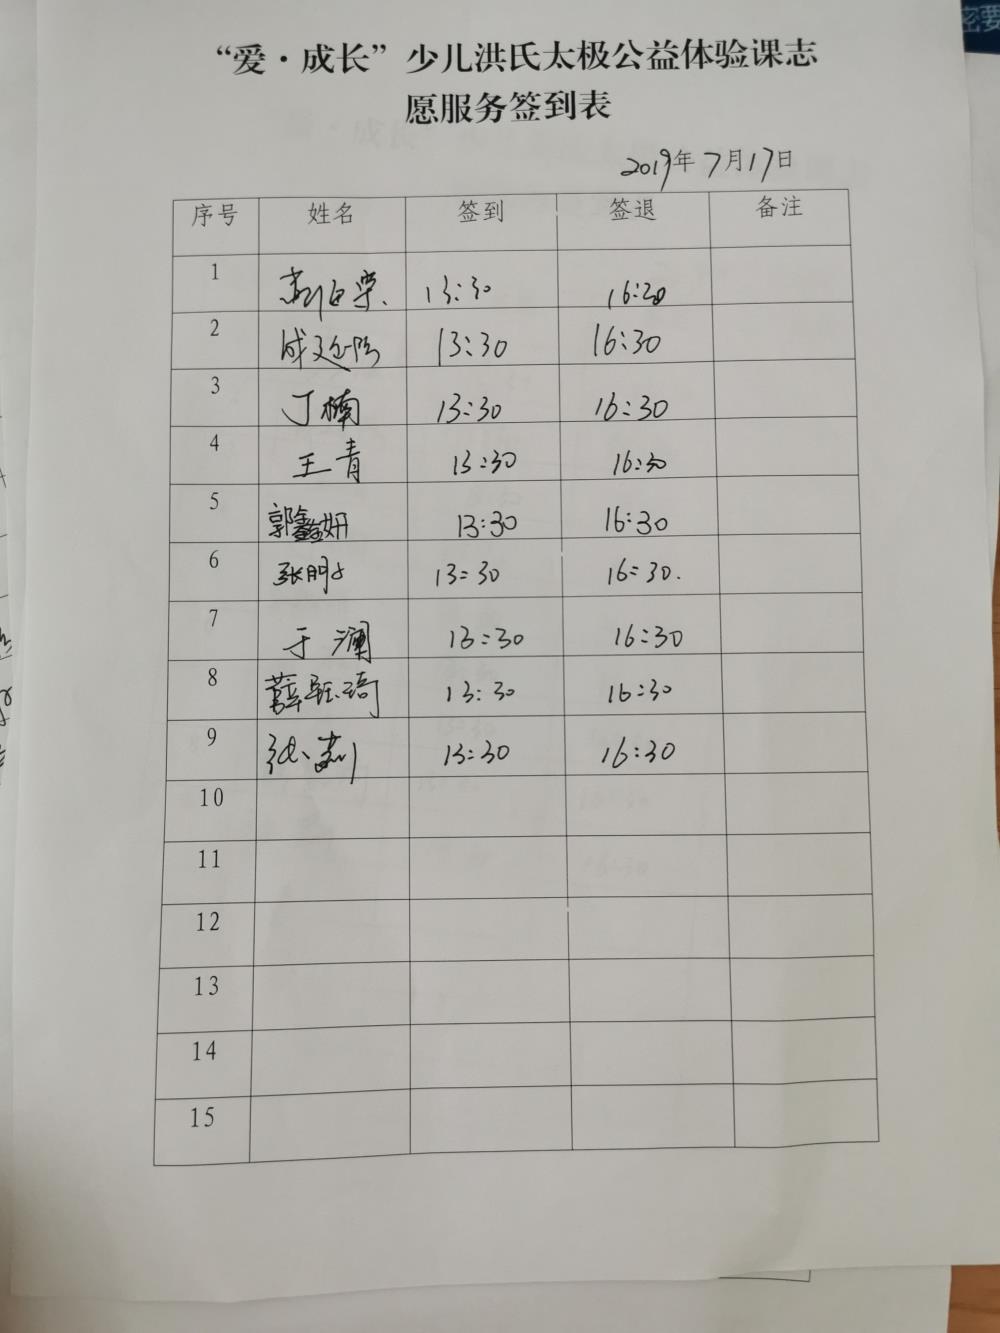 “爱·成长”少儿洪氏太极公益体验课志
愿服务签到表
2019年7月17日
序号 姓名 签到 签退 备注
1 13:30 16:30
2 13:30 16:30
3 丁楠 13:30 16:30
4 王青 13:30 16:30
5 郭鑫妍 13:30 16:30
6 13:30 16:30.
7 于澜 13:30 16:30
8 薛钰琦 13:30 16:30
9 张莉 13:30 16:30
10
11
12
13
14
15